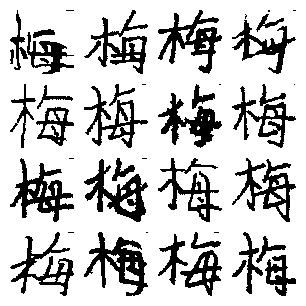 梅梅梅梅
梅梅梅梅
梅梅梅梅
梅梅梅梅